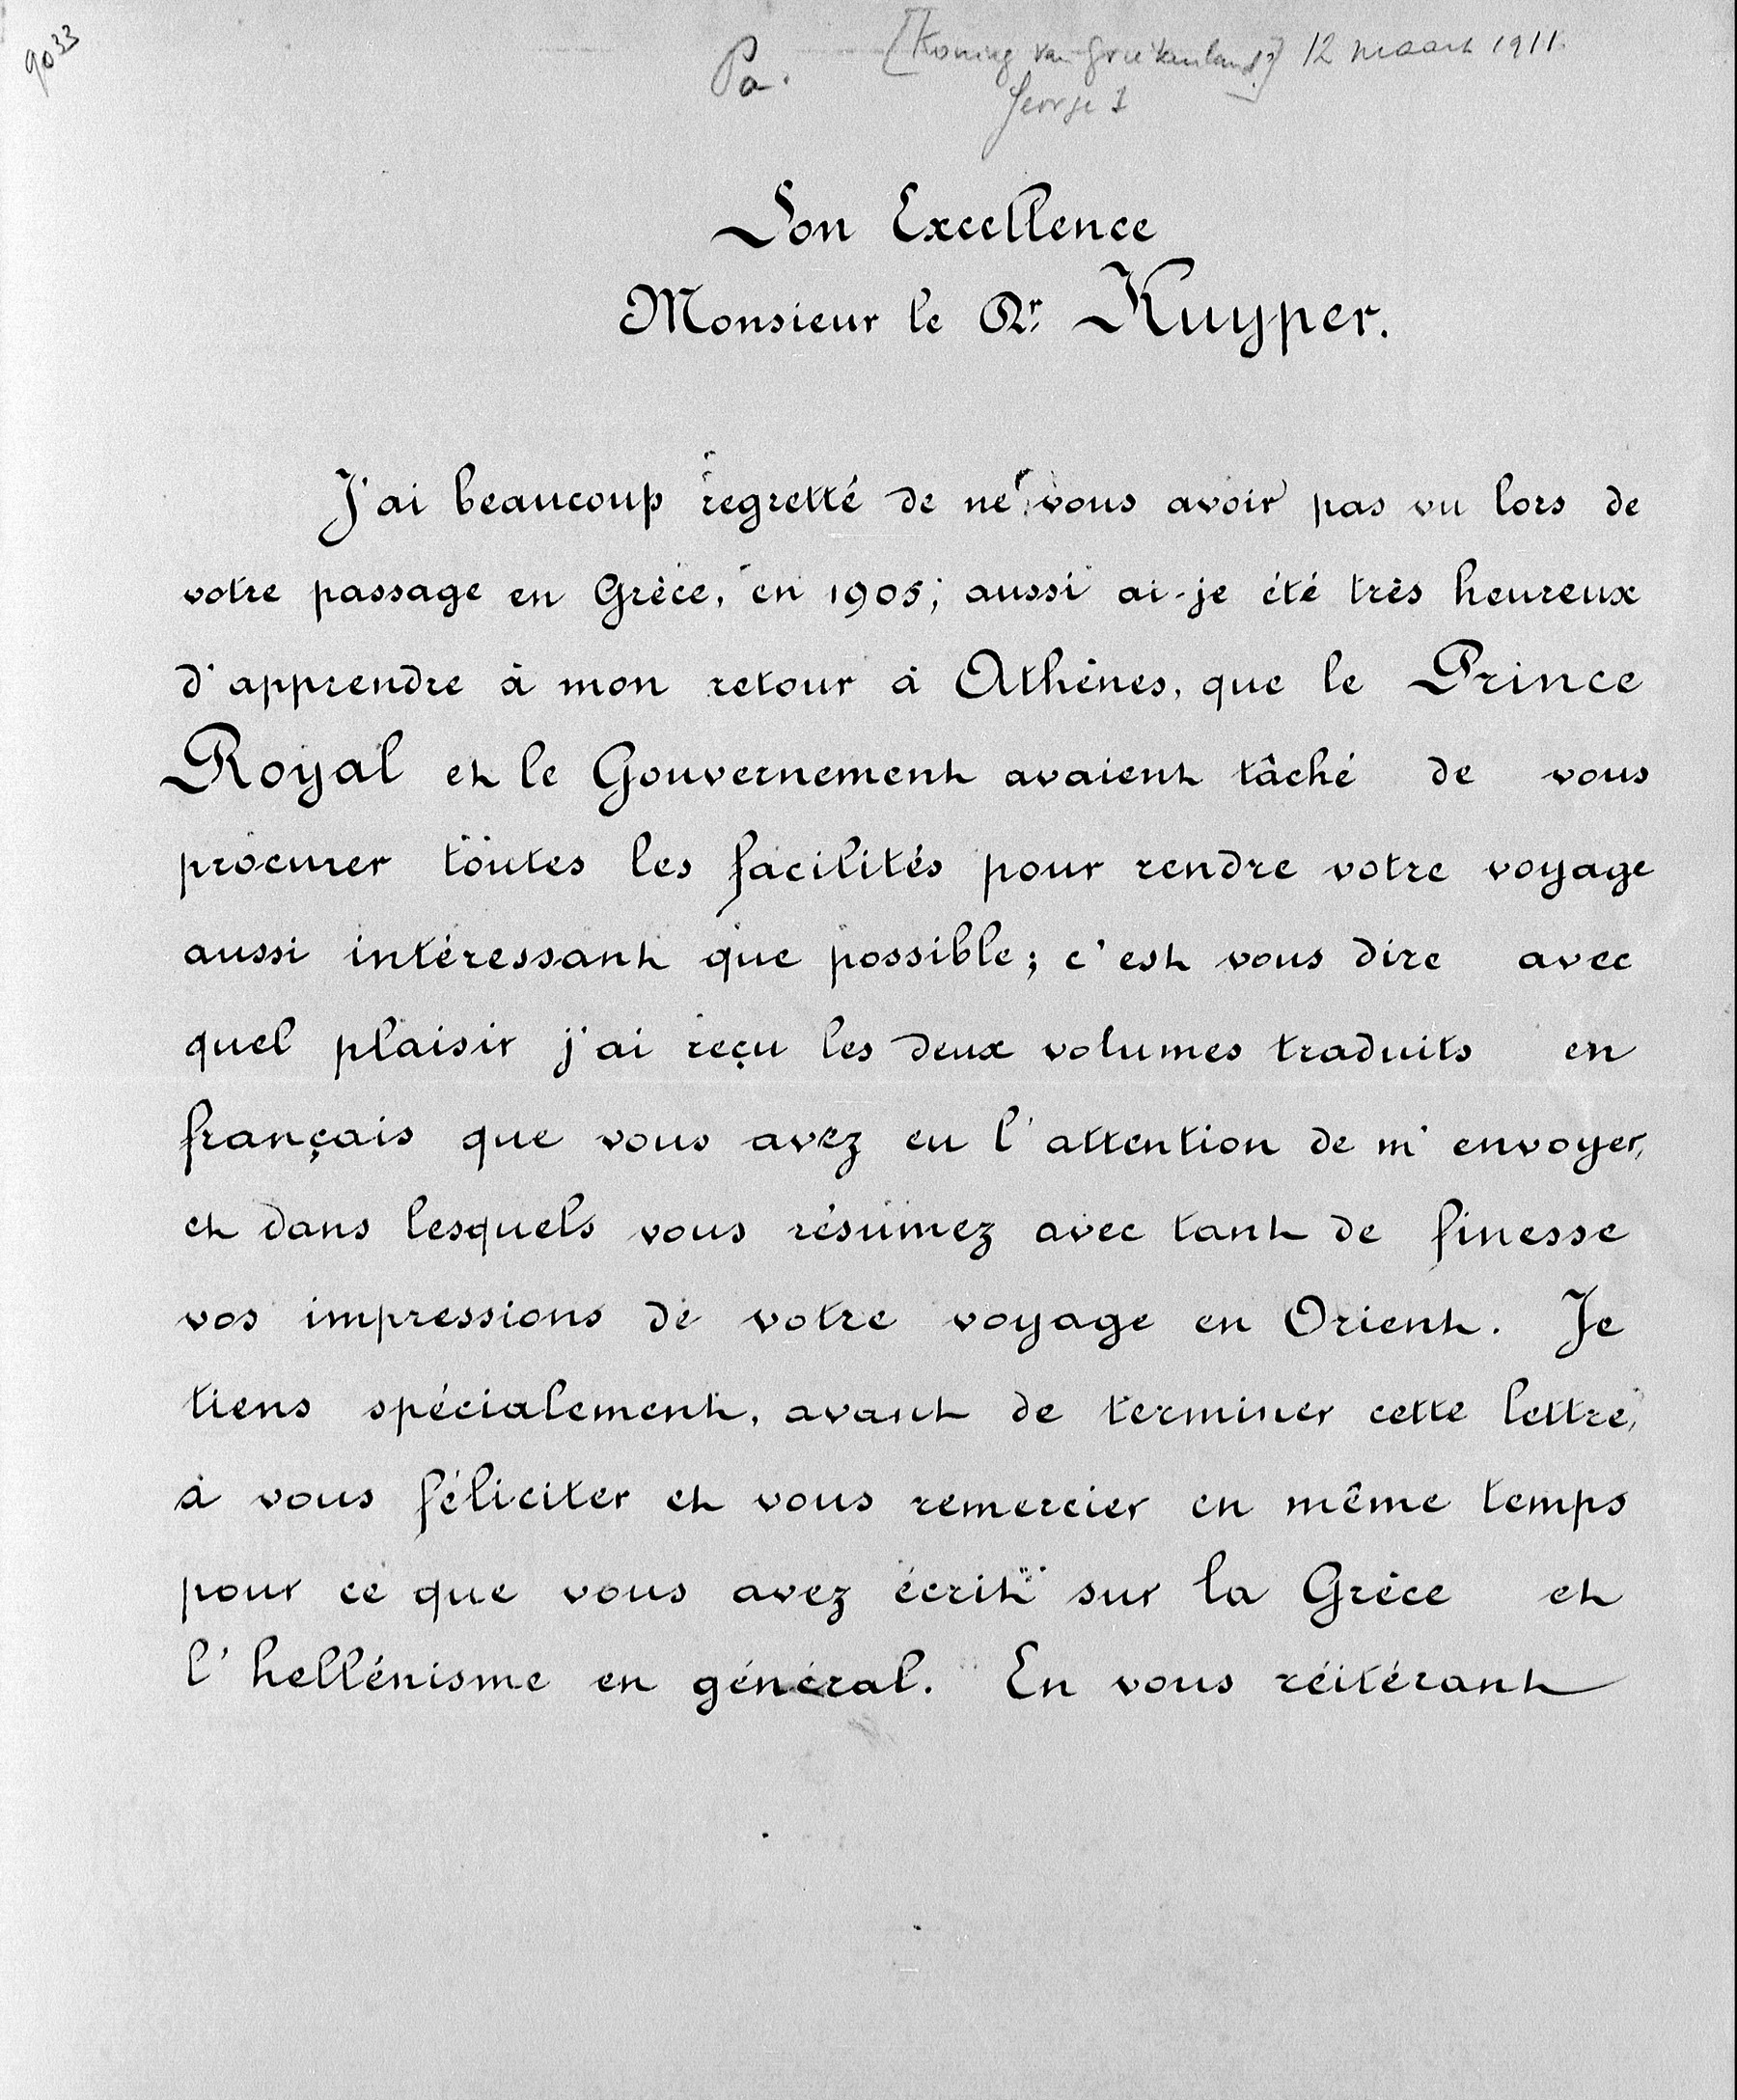 9033
Pa. [Koning van Griekenland?] 12 maart 1911.
George I
Son Excellence
Monsieur le Dr. Kuyper.
J'ai beaucoup regretté de ne vous avoir pas vu lors de
votre passage en Grèce, en 1905; aussi ai-je été très heureux
d'apprendre à mon retour à Athènes, que le Prince
Royal et le Gouvernement avaient tâché de vous
procurer toutes les facilités pour rendre votre voyage
aussi intéressant que possible; c'est vous dire avec
quel plaisir j'ai reçu les deux volumes traduits en
français que vous avez eu l'attention de m'envoyer,
et dans lesquels vous résumez avec tant de finesse
vos impressions de votre voyage en Orient. Je
tiens spécialement, avant de terminer cette lettre,
à vous féliciter et vous remercier en même temps
pour ce que vous avez écrit sur la Grèce et
l'hellénisme en général. En vous réitérant